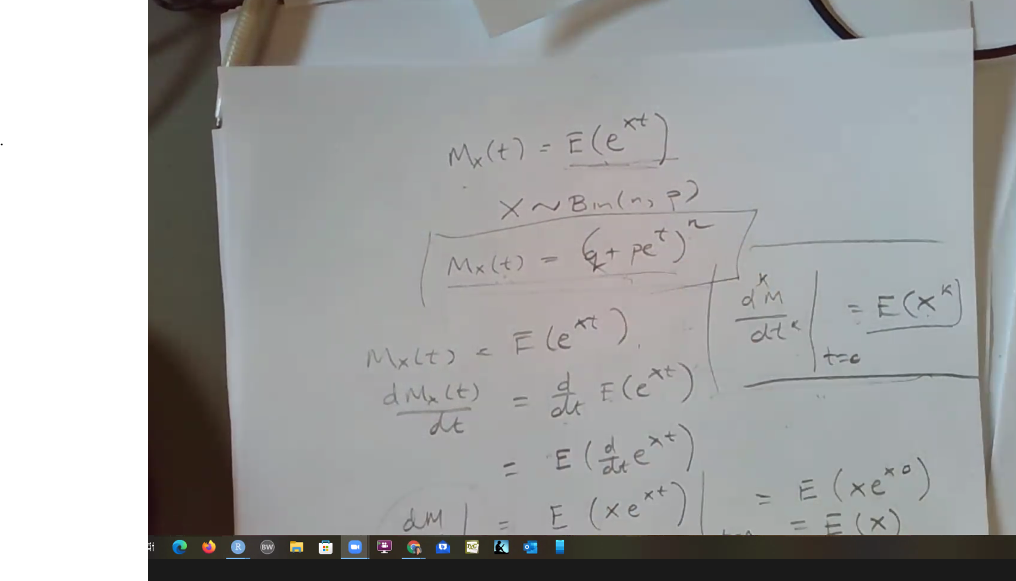 Mx(t) = E(e^xt)
X ~ Bin(n, p)
Mx(t) = (q + pe^t)^n
d^k M / dt^k | t=0 = E(X^k)
Mx(t) = E(e^xt).
dMx(t) / dt = d/dt E(e^xt)
= E(d/dt e^xt)
dM | = E(xe^xt) | = E(xe^x0)
= E(x)